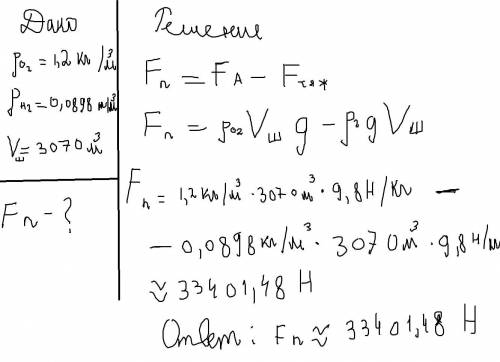 Дано
ρо₂=1,2 кг/м³
ρн₂=0,0898 кг/м³
Vш=3070 м³
Fп - ?
Решение
Fп = FА - Fтяж
Fп = ρо₂ Vш g - ρ₂ g Vш
Fп = 1,2 кг/м³ · 3070 м³ · 9,8 Н/кг -
- 0,0898 кг/м³ · 3070 м³ · 9,8 Н/кг
≈ 33401,48 Н
Ответ: Fп ≈ 33401,48 Н